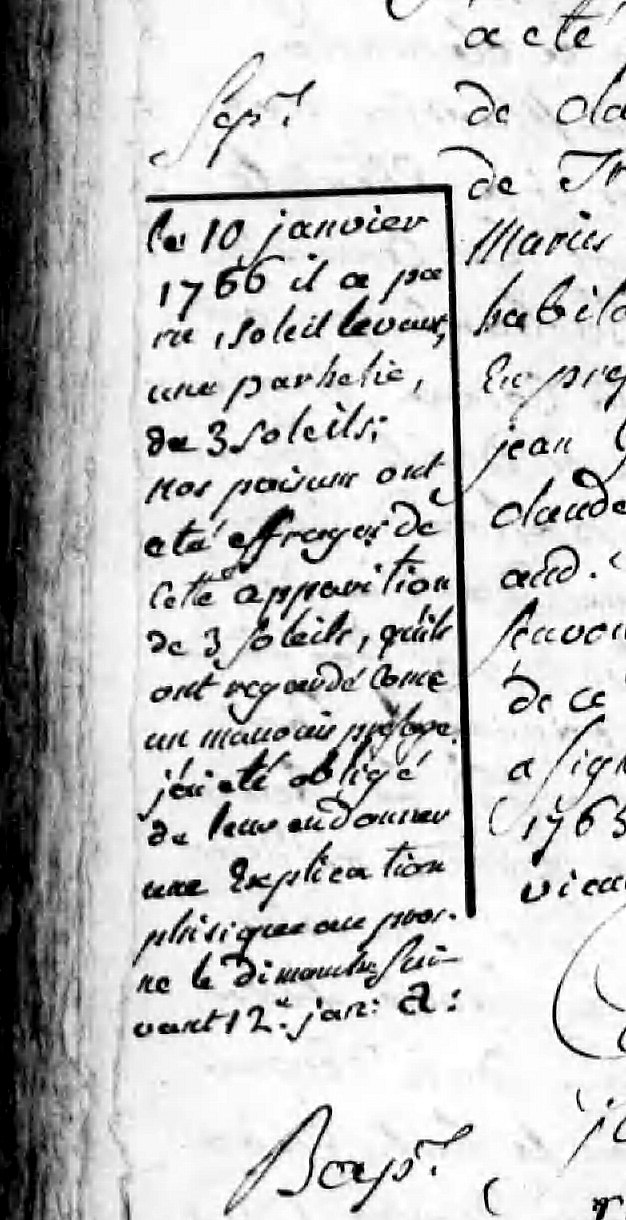 Sep.t
le 10 janvier
1766 il a pa
ru, soleil levant,
une parhelie,
de 3 soleils;
nos paisans ont
eté effrayés de
cete apparition
de 3 soleils, qu'ils
ont regardé come
un mauvais présage.
j'ai eté obligé
de leur en donner
une Explication
phisique au pro-
ne le dimanche sui-
vant 12.e jan: a:
Bap.t
a eté
de cla
de
Marie
babila
En pre
jean
claude
aud.
scavoi
de ce
a sign
1765
vica